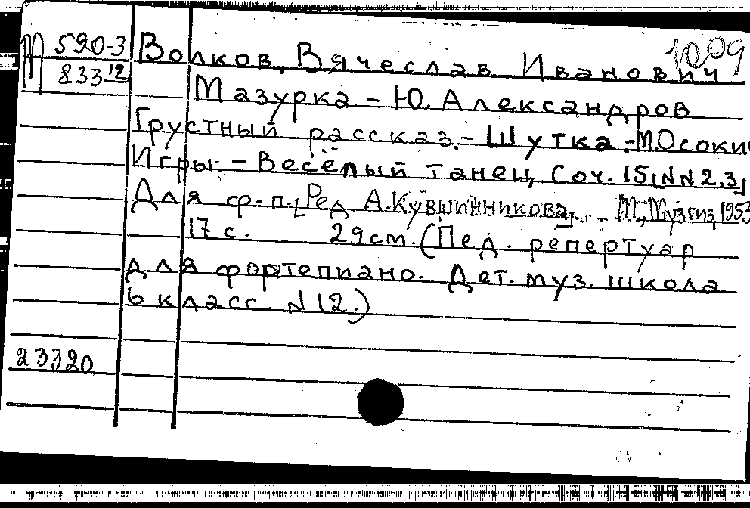 1009
М 590-3 Волков, Вячеслав Иванович
833 12 Мазурка - Ю. Александров
Грустный рассказ. - Шутка - М. Осоки
Игры. - Весёлый танец, Соч. 15, NN 2, 3,
Для ф.-п. Ред А. Кувшинникова. - М., Музгиз, 1953
17 с. 29см. (Пед. репертуар
для фортепиано. Дет. муз. школа
6 класс N 12.)
23320